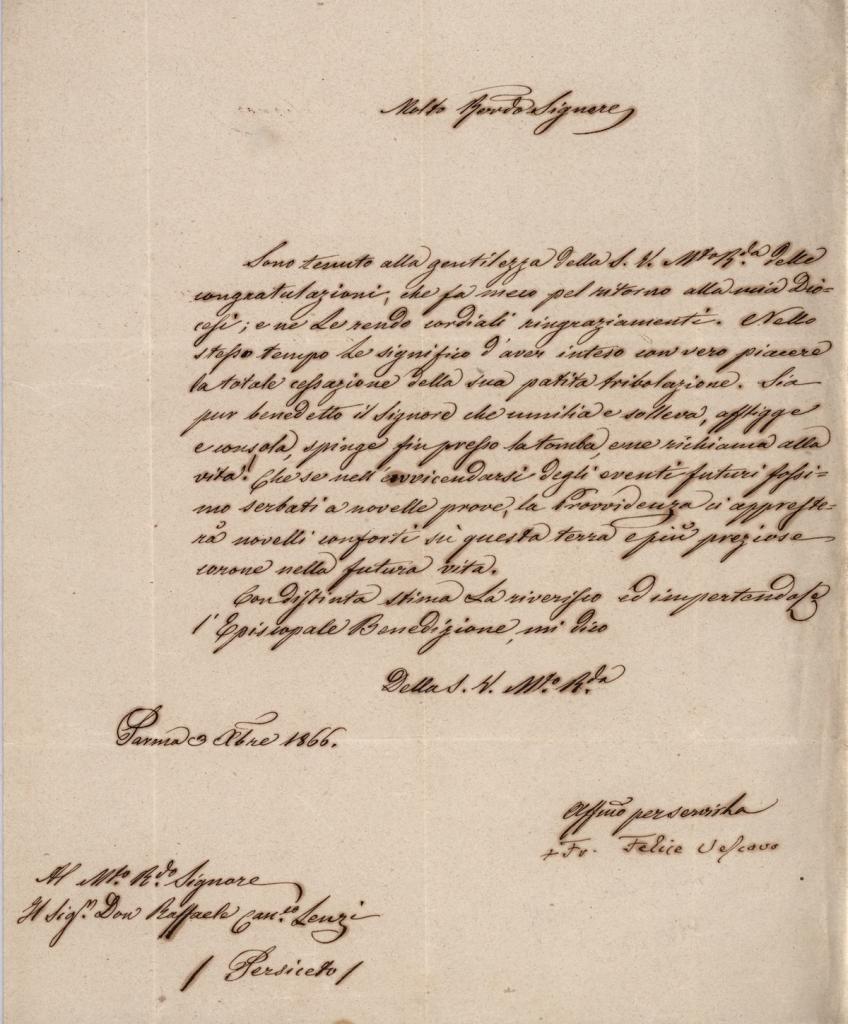 Molto Revdo Signore
Sono tenuto alla gentilezza della S. V. Mto Rda delle
congratulazioni, che fa meco pel ritorno alla mia Dio=
cesi; e ne Le rendo cordiali ringraziamenti. Nello
stesso tempo Le significo d'aver inteso con vero piacere
la totale cessazione della sua patita tribolazione. Sia
pur benedetto il Signore che umilia e solleva, affligge
e consola, spinge fin presso la tomba, e ne richiama alla
vita! Che se nell'avvicendarsi degli eventi futuri fossi=
mo serbati a novelle prove, la Provvidenza ci appreste=
rà novelli conforti su questa terra e più preziose
corone nella futura vita.
Con distinta stima La riverisco ed impertendole
l'Episcopale Benedizione, mi dico
Della S. V. Mto Rda
Parma 3 Xbre 1866.
Affmo per servirla
+ Fr. Felice Vescovo
Al Mto Rdo Signore
Il Sigr Don Raffaele Canco Lenzi
/ Persiceto /